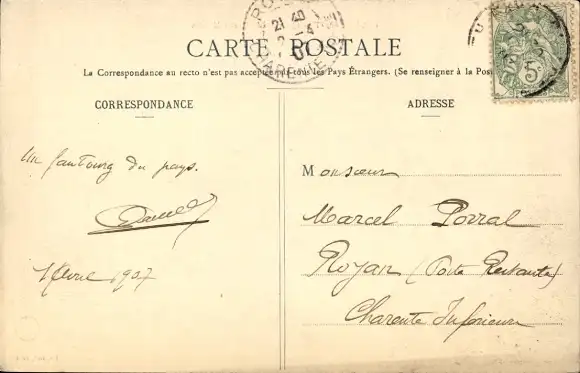 CARTE POSTALE
La Correspondance au recto n'est pas acceptée par tous les Pays Étrangers. (Se renseigner à la Pos
CORRESPONDANCE
ADRESSE
Un faubourg du pays.
1907
Monsieur
Marcel Porral
Royan (Poste Restante)
Charente Inférieure
21 40
5